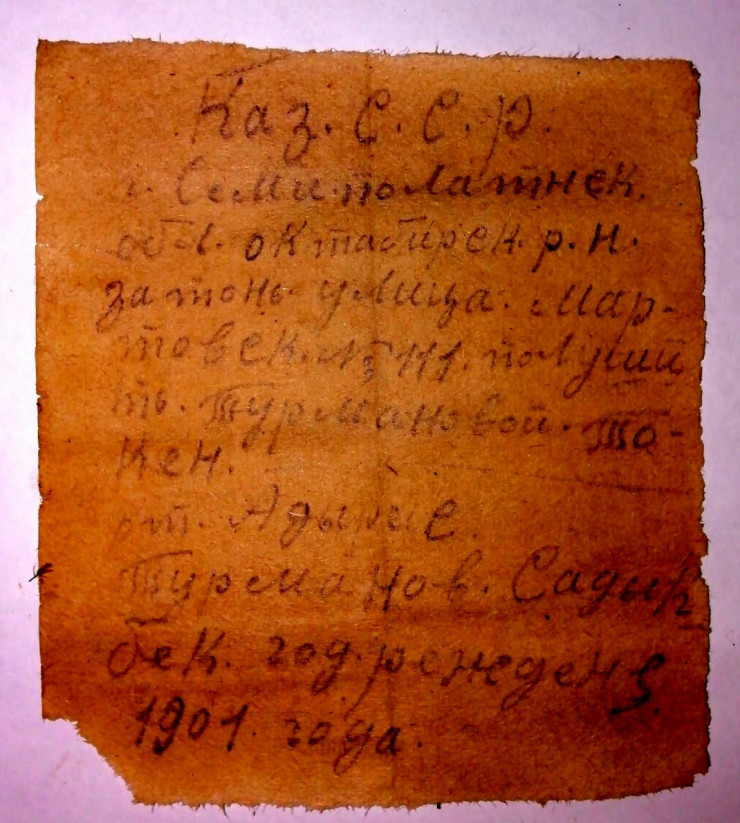 Каз. С. С. р.
г. Семи.полатнск.
обл. октабирск. р. н.
затонь улица. Мар-
товск. № 141. полущий
ть. Турмановой. То-
кен.
от. Адылие.
Турманов. Садык
бек. год. режеден
1901. года.